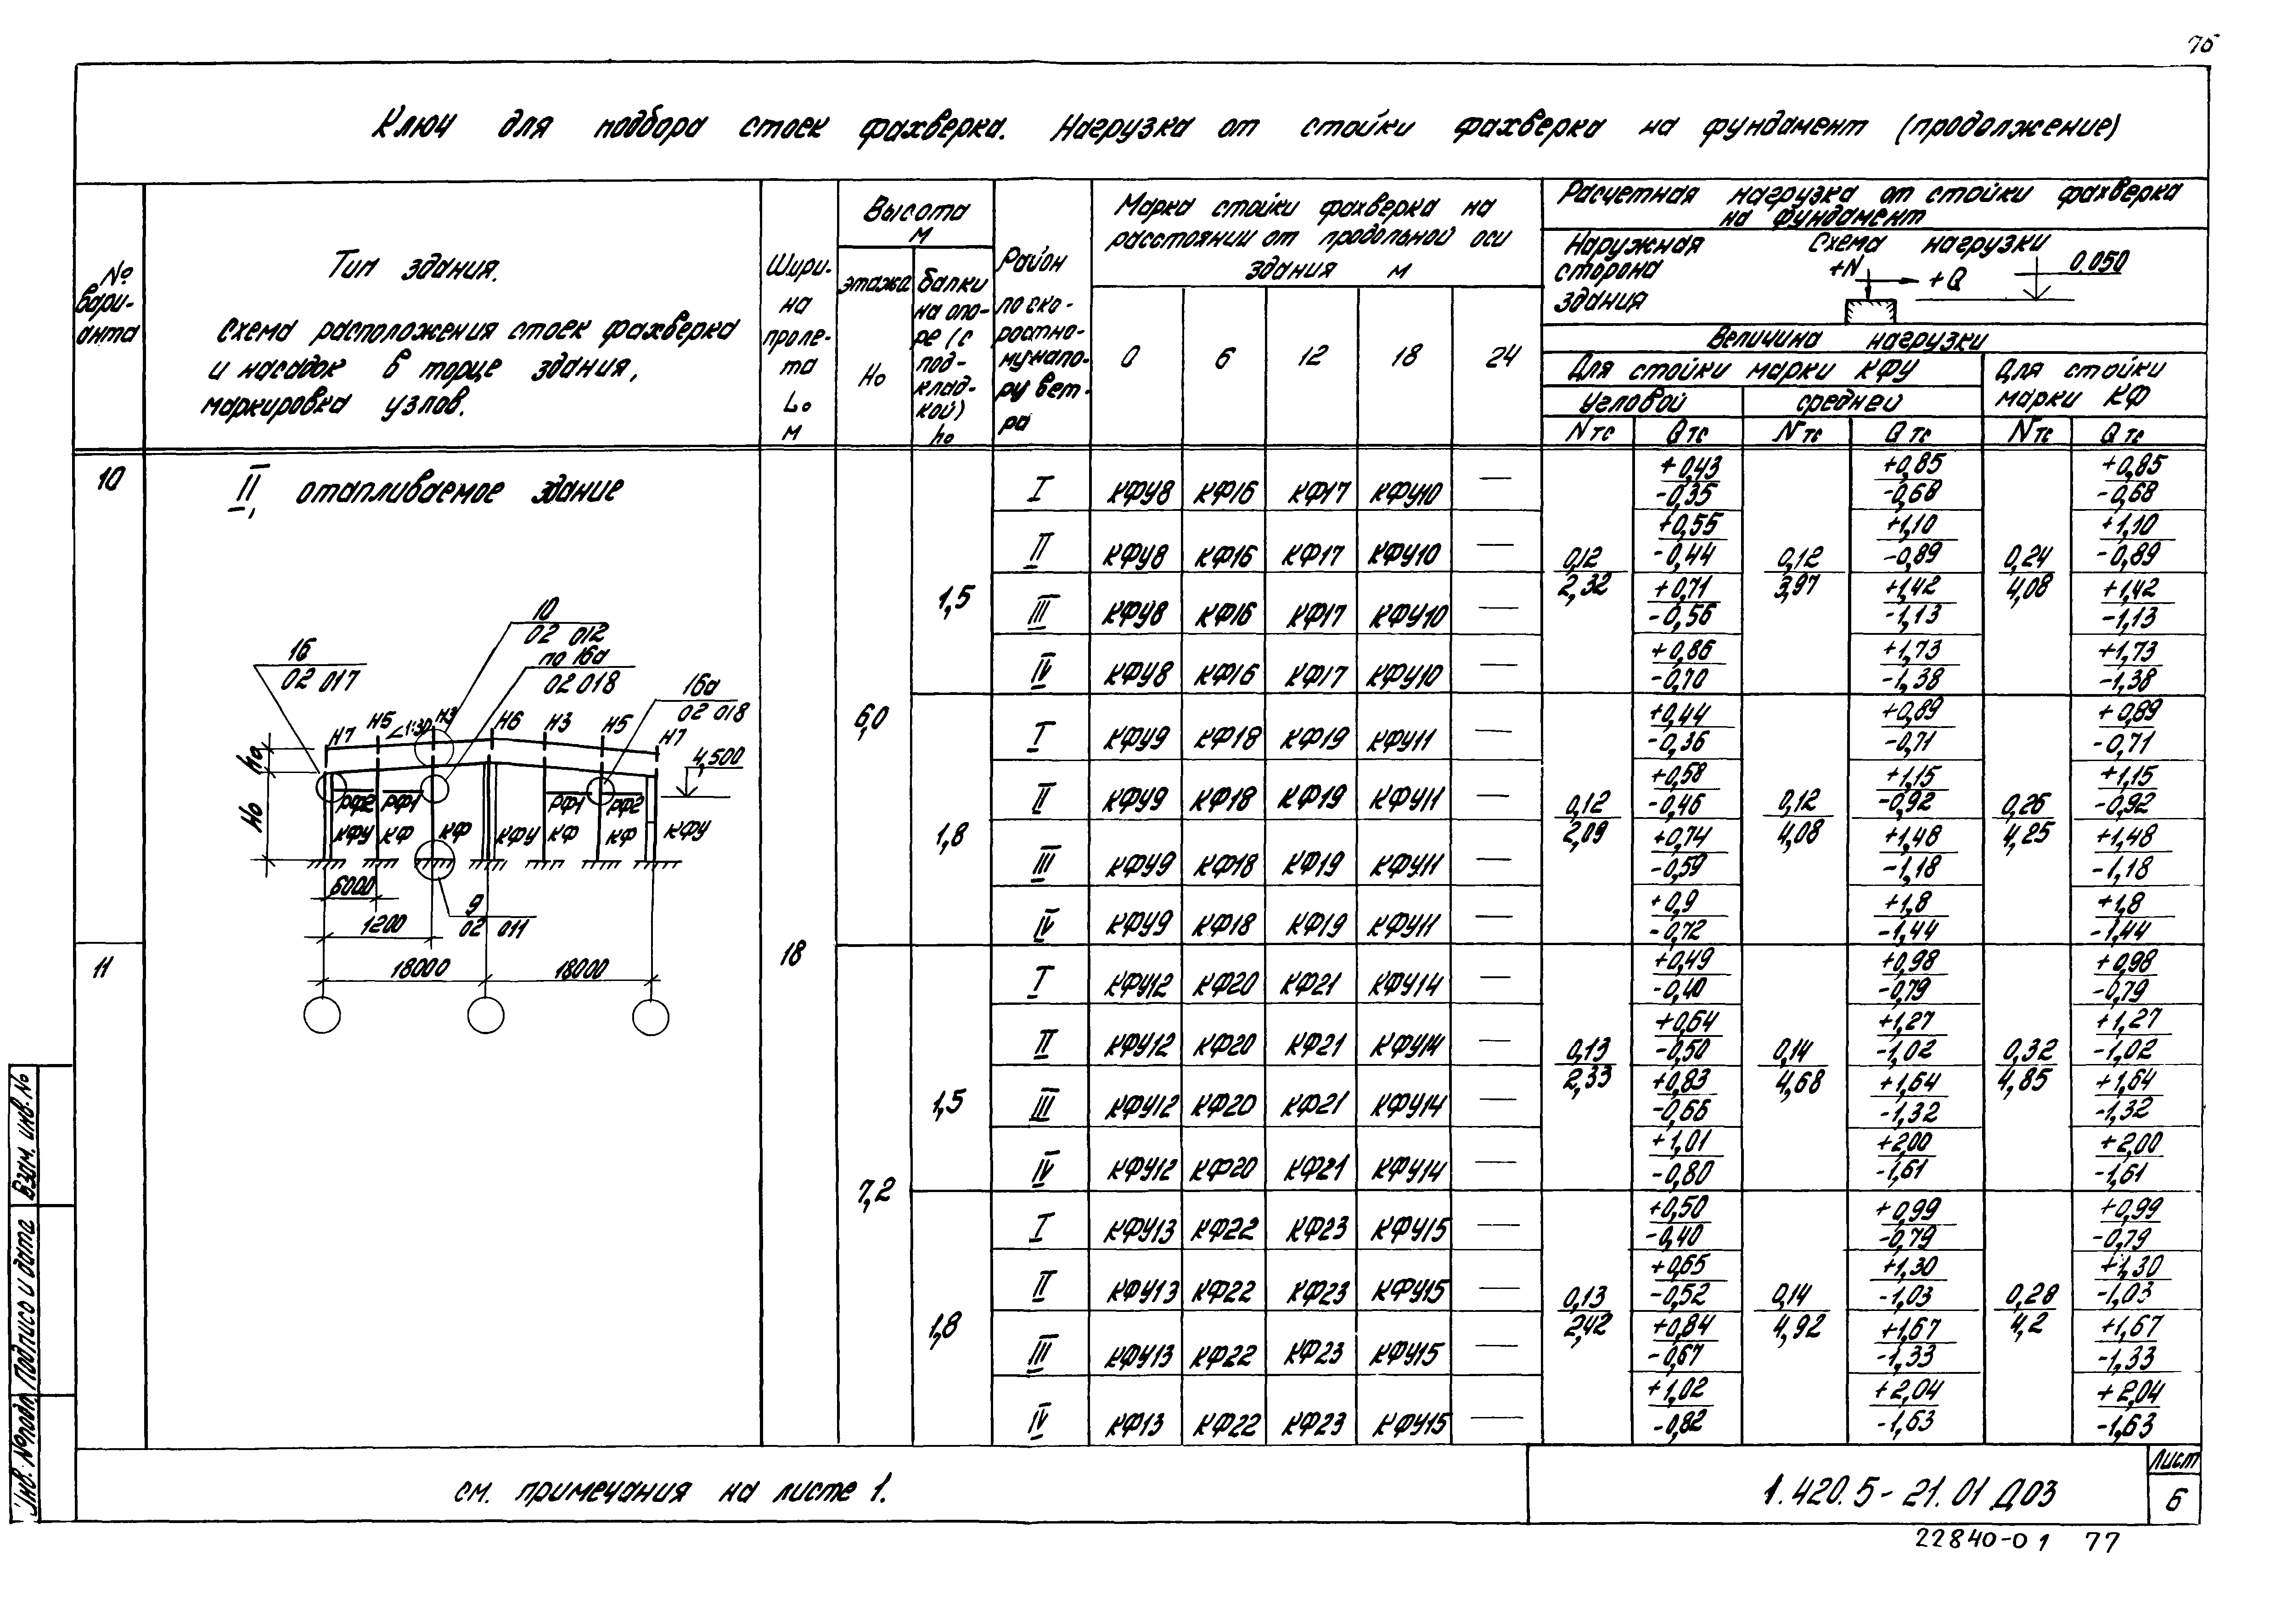 76
Ключ для подбора стоек фахверка. Нагрузка от стойки фахверка на фундамент (продолжение)
№ вари- анта
Тип здания.
Схема расположения стоек фахверка
и насадок в торце здания,
маркировка узлов.
Шири- на проле- та L₀ м
Высота м
этажа H₀
балки на опо- ре (с под- клад- кой) h₀
Район по ско- ростно- му напо- ру вет- ра
Марка стойки фахверка на
расстоянии от продольной оси
здания м
0 6 12 18 24
Расчетная нагрузка от стойки фахверка
на фундамент
Наружная сторона здания
Схема нагрузки
+N +Q 0.050
Величина нагрузки
Для стойки марки КФУ
Для стойки марки КФ
угловой средней
N тс Q тс N тс Q тс N тс Q тс
10
II, отапливаемое здание
10
02 012
по 16а
02 018
16
02 017
16а
02 018
Н7 Н5 <1:30 Н3 Н6 Н3 Н5 Н7
h₀
4,500
H₀
РФ2 РФ1 РФ1 РФ2
КФУ КФ КФ КФУ КФ КФ КФУ
6000
9
02 011
1200
18000 18000
11
18
6,0
1,5
0,12 / 2,32 0,12 / 3,97 0,24 / 4,08
I КФУ8 КФ16 КФ17 КФУ10 — +0,43 / -0,35 +0,85 / -0,68 +0,85 / -0,68
II КФУ8 КФ16 КФ17 КФУ10 — +0,55 / -0,44 +1,10 / -0,89 +1,10 / -0,89
III КФУ8 КФ16 КФ17 КФУ10 — +0,71 / -0,56 +1,42 / -1,13 +1,42 / -1,13
IV КФУ8 КФ16 КФ17 КФУ10 — +0,86 / -0,70 +1,73 / -1,38 +1,73 / -1,38
1,8
0,12 / 2,09 0,12 / 4,08 0,26 / 4,25
I КФУ9 КФ18 КФ19 КФУ11 — +0,44 / -0,36 +0,89 / -0,71 +0,89 / -0,71
II КФУ9 КФ18 КФ19 КФУ11 — +0,58 / -0,46 +1,15 / -0,92 +1,15 / -0,92
III КФУ9 КФ18 КФ19 КФУ11 — +0,74 / -0,59 +1,48 / -1,18 +1,48 / -1,18
IV КФУ9 КФ18 КФ19 КФУ11 — +0,9 / -0,72 +1,8 / -1,44 +1,8 / -1,44
7,2
1,5
0,13 / 2,33 0,14 / 4,68 0,32 / 4,85
I КФУ12 КФ20 КФ21 КФУ14 — +0,49 / -0,40 +0,98 / -0,79 +0,98 / -0,79
II КФУ12 КФ20 КФ21 КФУ14 — +0,64 / -0,50 +1,27 / -1,02 +1,27 / -1,02
III КФУ12 КФ20 КФ21 КФУ14 — +0,83 / -0,66 +1,64 / -1,32 +1,64 / -1,32
IV КФУ12 КФ20 КФ21 КФУ14 — +1,01 / -0,80 +2,00 / -1,61 +2,00 / -1,61
1,8
0,13 / 2,42 0,14 / 4,92 0,28 / 4,2
I КФУ13 КФ22 КФ23 КФУ15 — +0,50 / -0,40 +0,99 / -0,79 +0,99 / -0,79
II КФУ13 КФ22 КФ23 КФУ15 — +0,65 / -0,52 +1,30 / -1,03 +1,30 / -1,03
III КФУ13 КФ22 КФ23 КФУ15 — +0,84 / -0,67 +1,67 / -1,33 +1,67 / -1,33
IV КФ13 КФ22 КФ23 КФУ15 — +1,02 / -0,82 +2,04 / -1,63 +2,04 / -1,63
Инв. № подл. Подпись и дата Взам. инв. №
см. примечания на листе 1.
1.420.5-21.01 Д03
Лист
6
22840-01 77